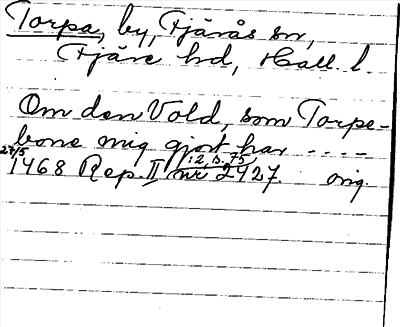 Torpa, by, Fjärås sn,
Fjäre hd, Hall. l.
Om den Vold, som Torpe-
bone mig gjort har ----
27/5 :2, s. 75
1468 Rep. II nr 2427. orig.